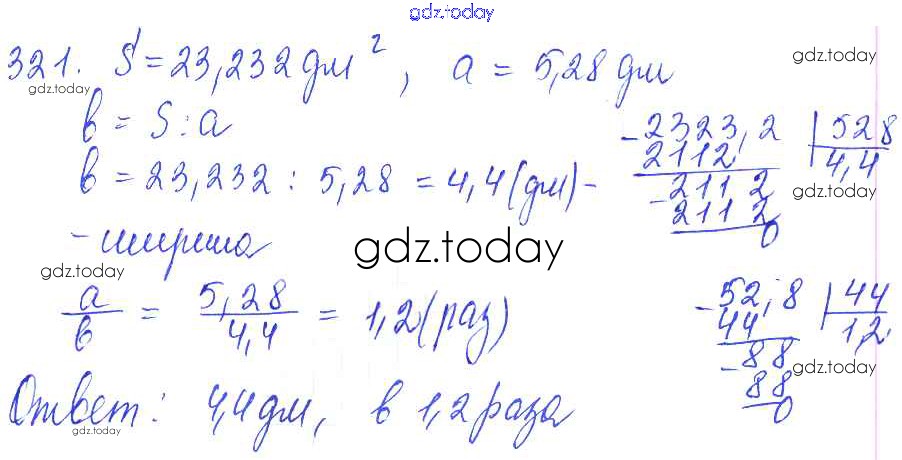 gdz.today
321. S = 23,232 дм², a = 5,28 дм
gdz.today
gdz.today
в = S : a
в = 23,232 : 5,28 = 4,4 (дм) -
- ширина
-2323,2 | 528
2112 | 4,4
-2112
2112
0
gdz.today
gdz.today
gdz.today
a/в = 5,28/4,4 = 1,2 (раз)
-52,8 | 44
44 | 1,2
-88
88
0
gdz.today
Ответ: 4,4 дм, в 1,2 раза
gdz.today